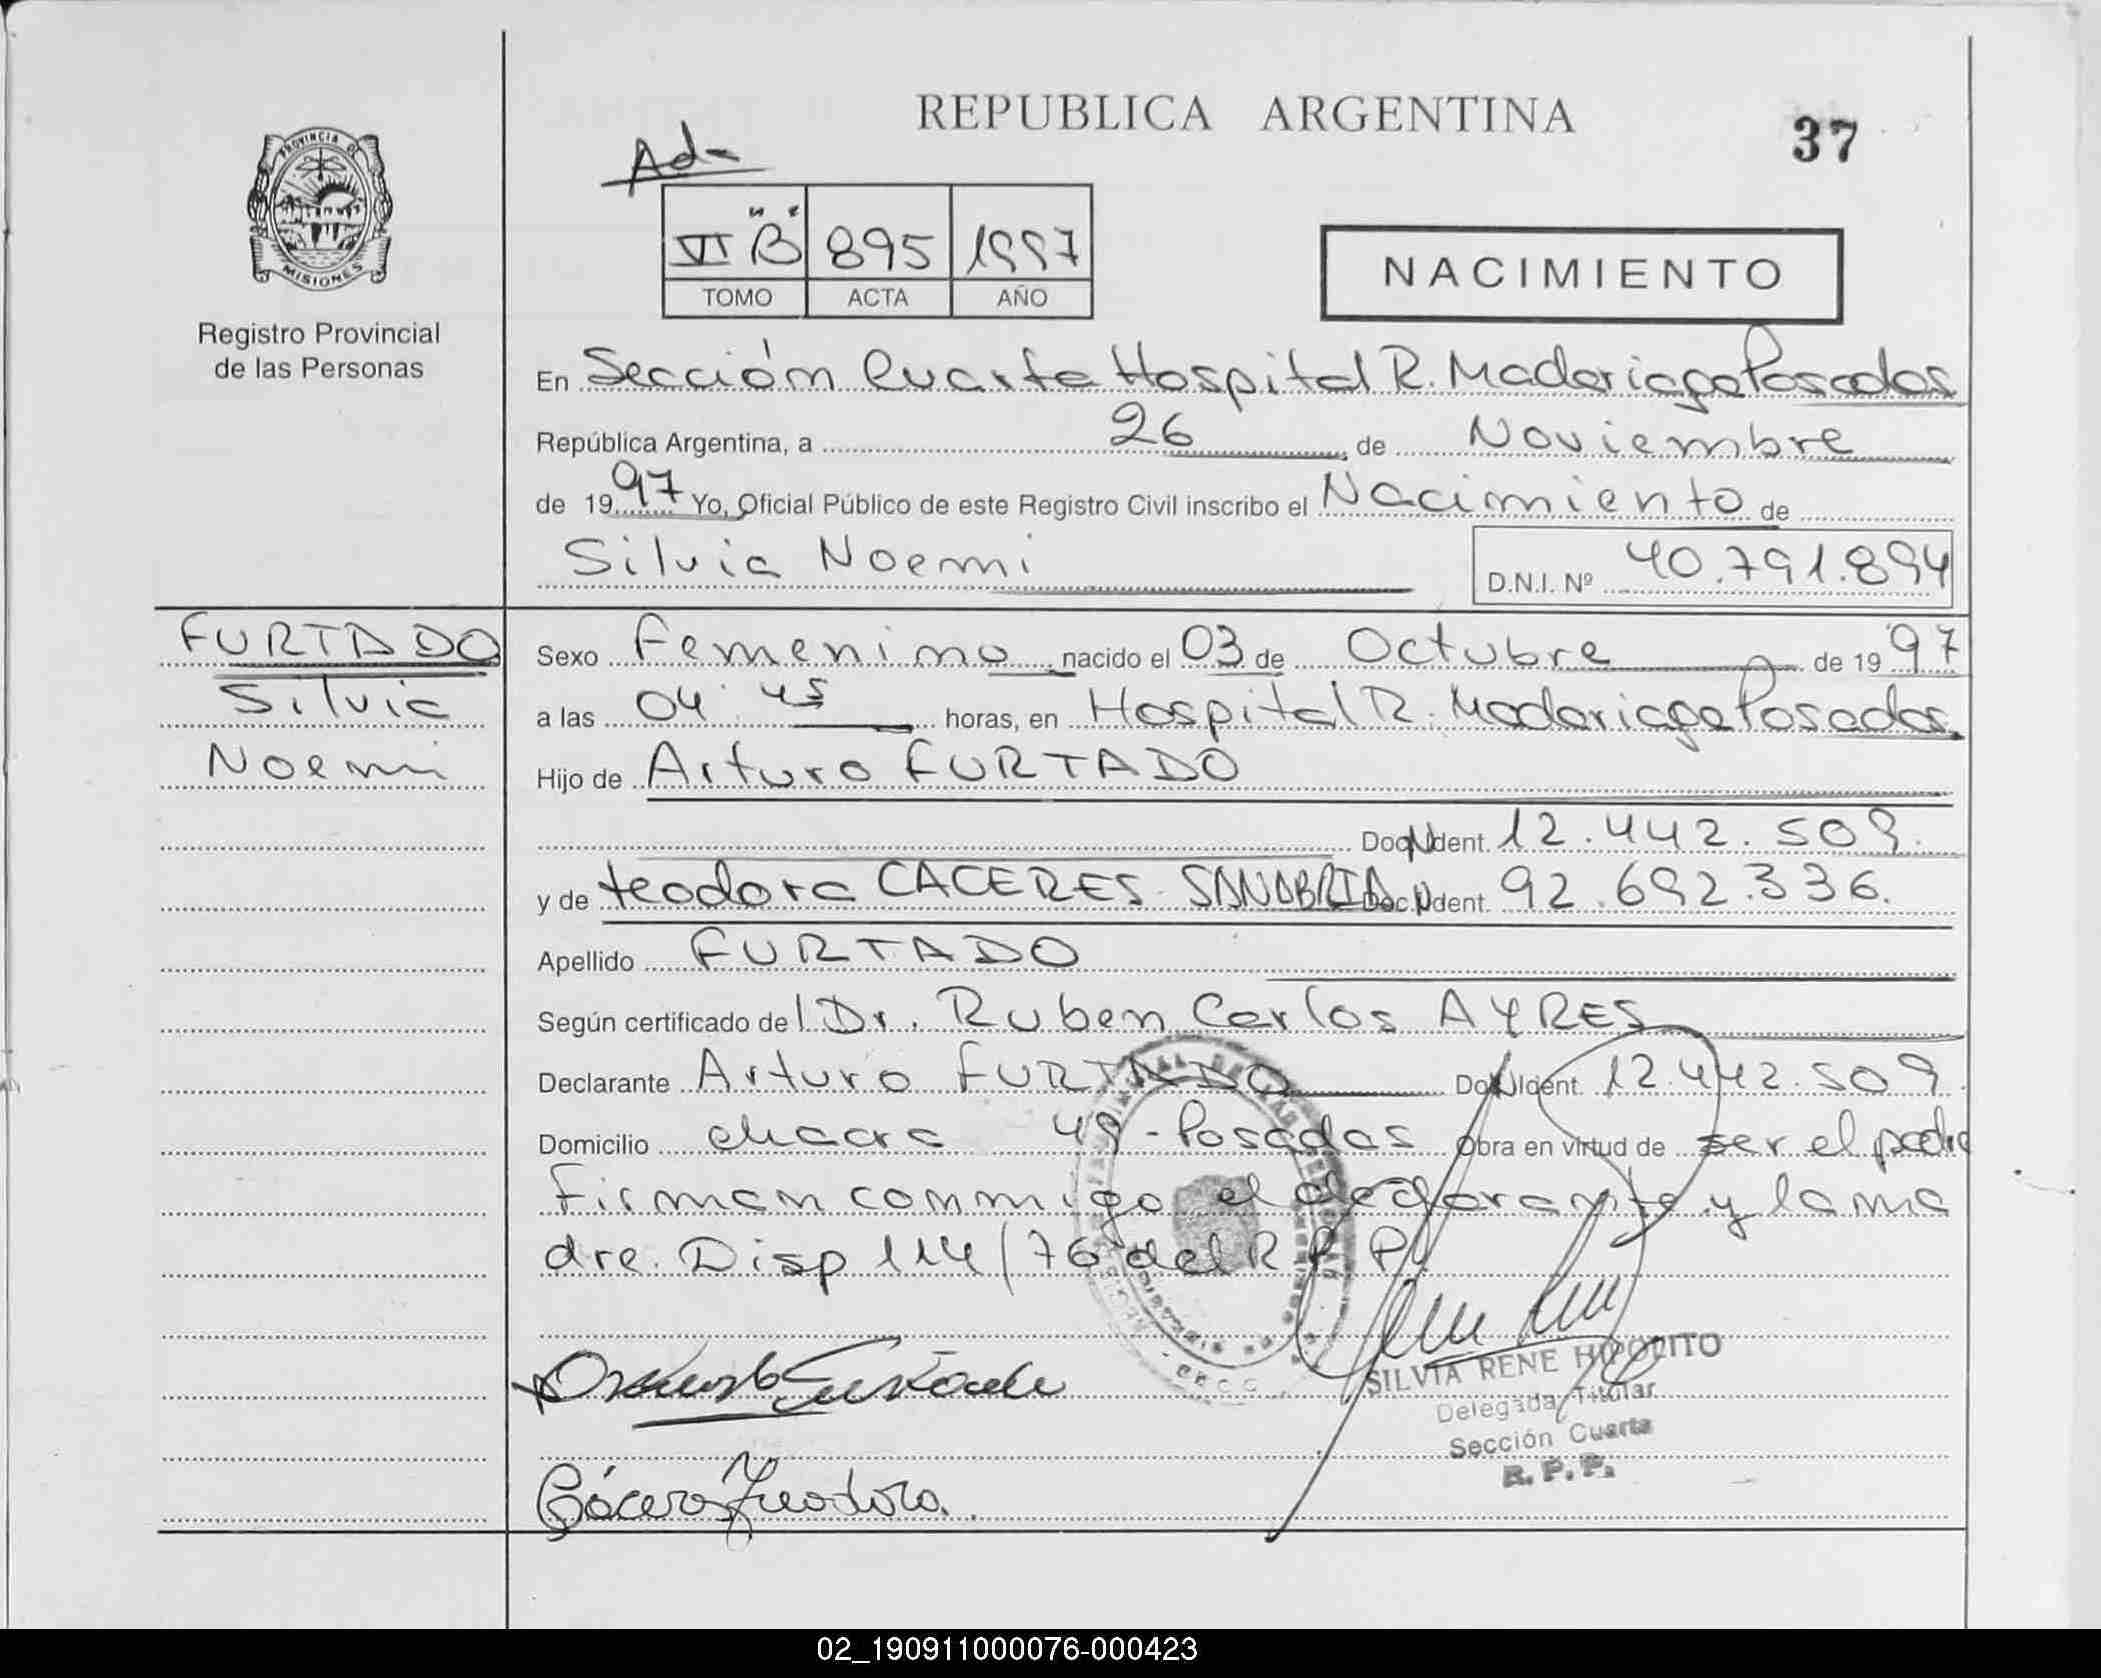 REPUBLICA ARGENTINA
37
Ad-
PROVINCIA DE
MISIONES
VI "B" 895 1997
TOMO ACTA AÑO
NACIMIENTO
Registro Provincial
de las Personas
En Sección Cuarta Hospital R. Madariaga Posadas
República Argentina, a 26 de Noviembre
de 1997 Yo, Oficial Público de este Registro Civil inscribo el Nacimiento de
Silvia Noemi
D.N.I. Nº 40.791.894
FURTADO
Silvia
Noemi
Sexo Femenino nacido el 03 de Octubre de 1997
a las 04:45 horas, en Hospital R. Madariaga Posadas
Hijo de Arturo FURTADO
Doc. Ident. 12.442.509.
y de teodora CACERES SANABRIA Doc. Ident. 92.692.336.
Apellido FURTADO
Según certificado del Dr. Ruben Carlos AYRES
Declarante Arturo FURTADO Doc. Ident. 12.442.509.
Domicilio chacra 49 - Posadas Obra en virtud de ser el padre
Firman conmigo el declarante y la ma
dre. Disp 114/76 del R.P.P.
SILVIA RENE HIPOLITO
Delegada Titular
Sección Cuarta
R.P.P.
Cácere Teodora.
02_190911000076-000423